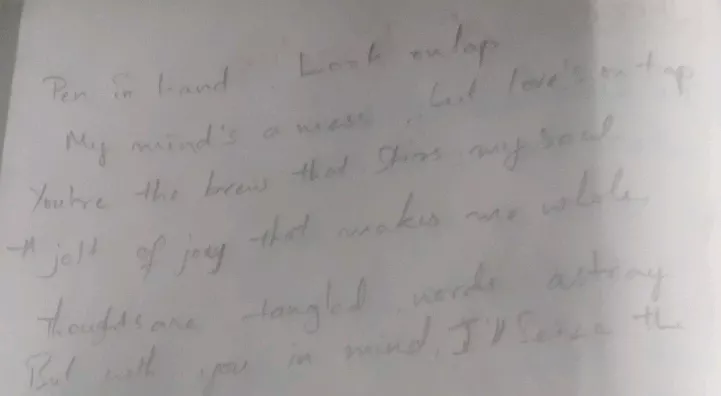 Pen in hand. Look on lap
My mind's a mess, but love's on tap
You're the brew that stirs my soul
A jolt of joy that makes me whole,
Thoughts are tangled, words astray
But with you in mind, I'll seize the